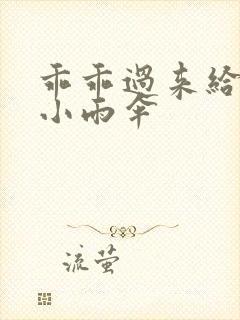 乖乖過来給
小雨伞
流萤